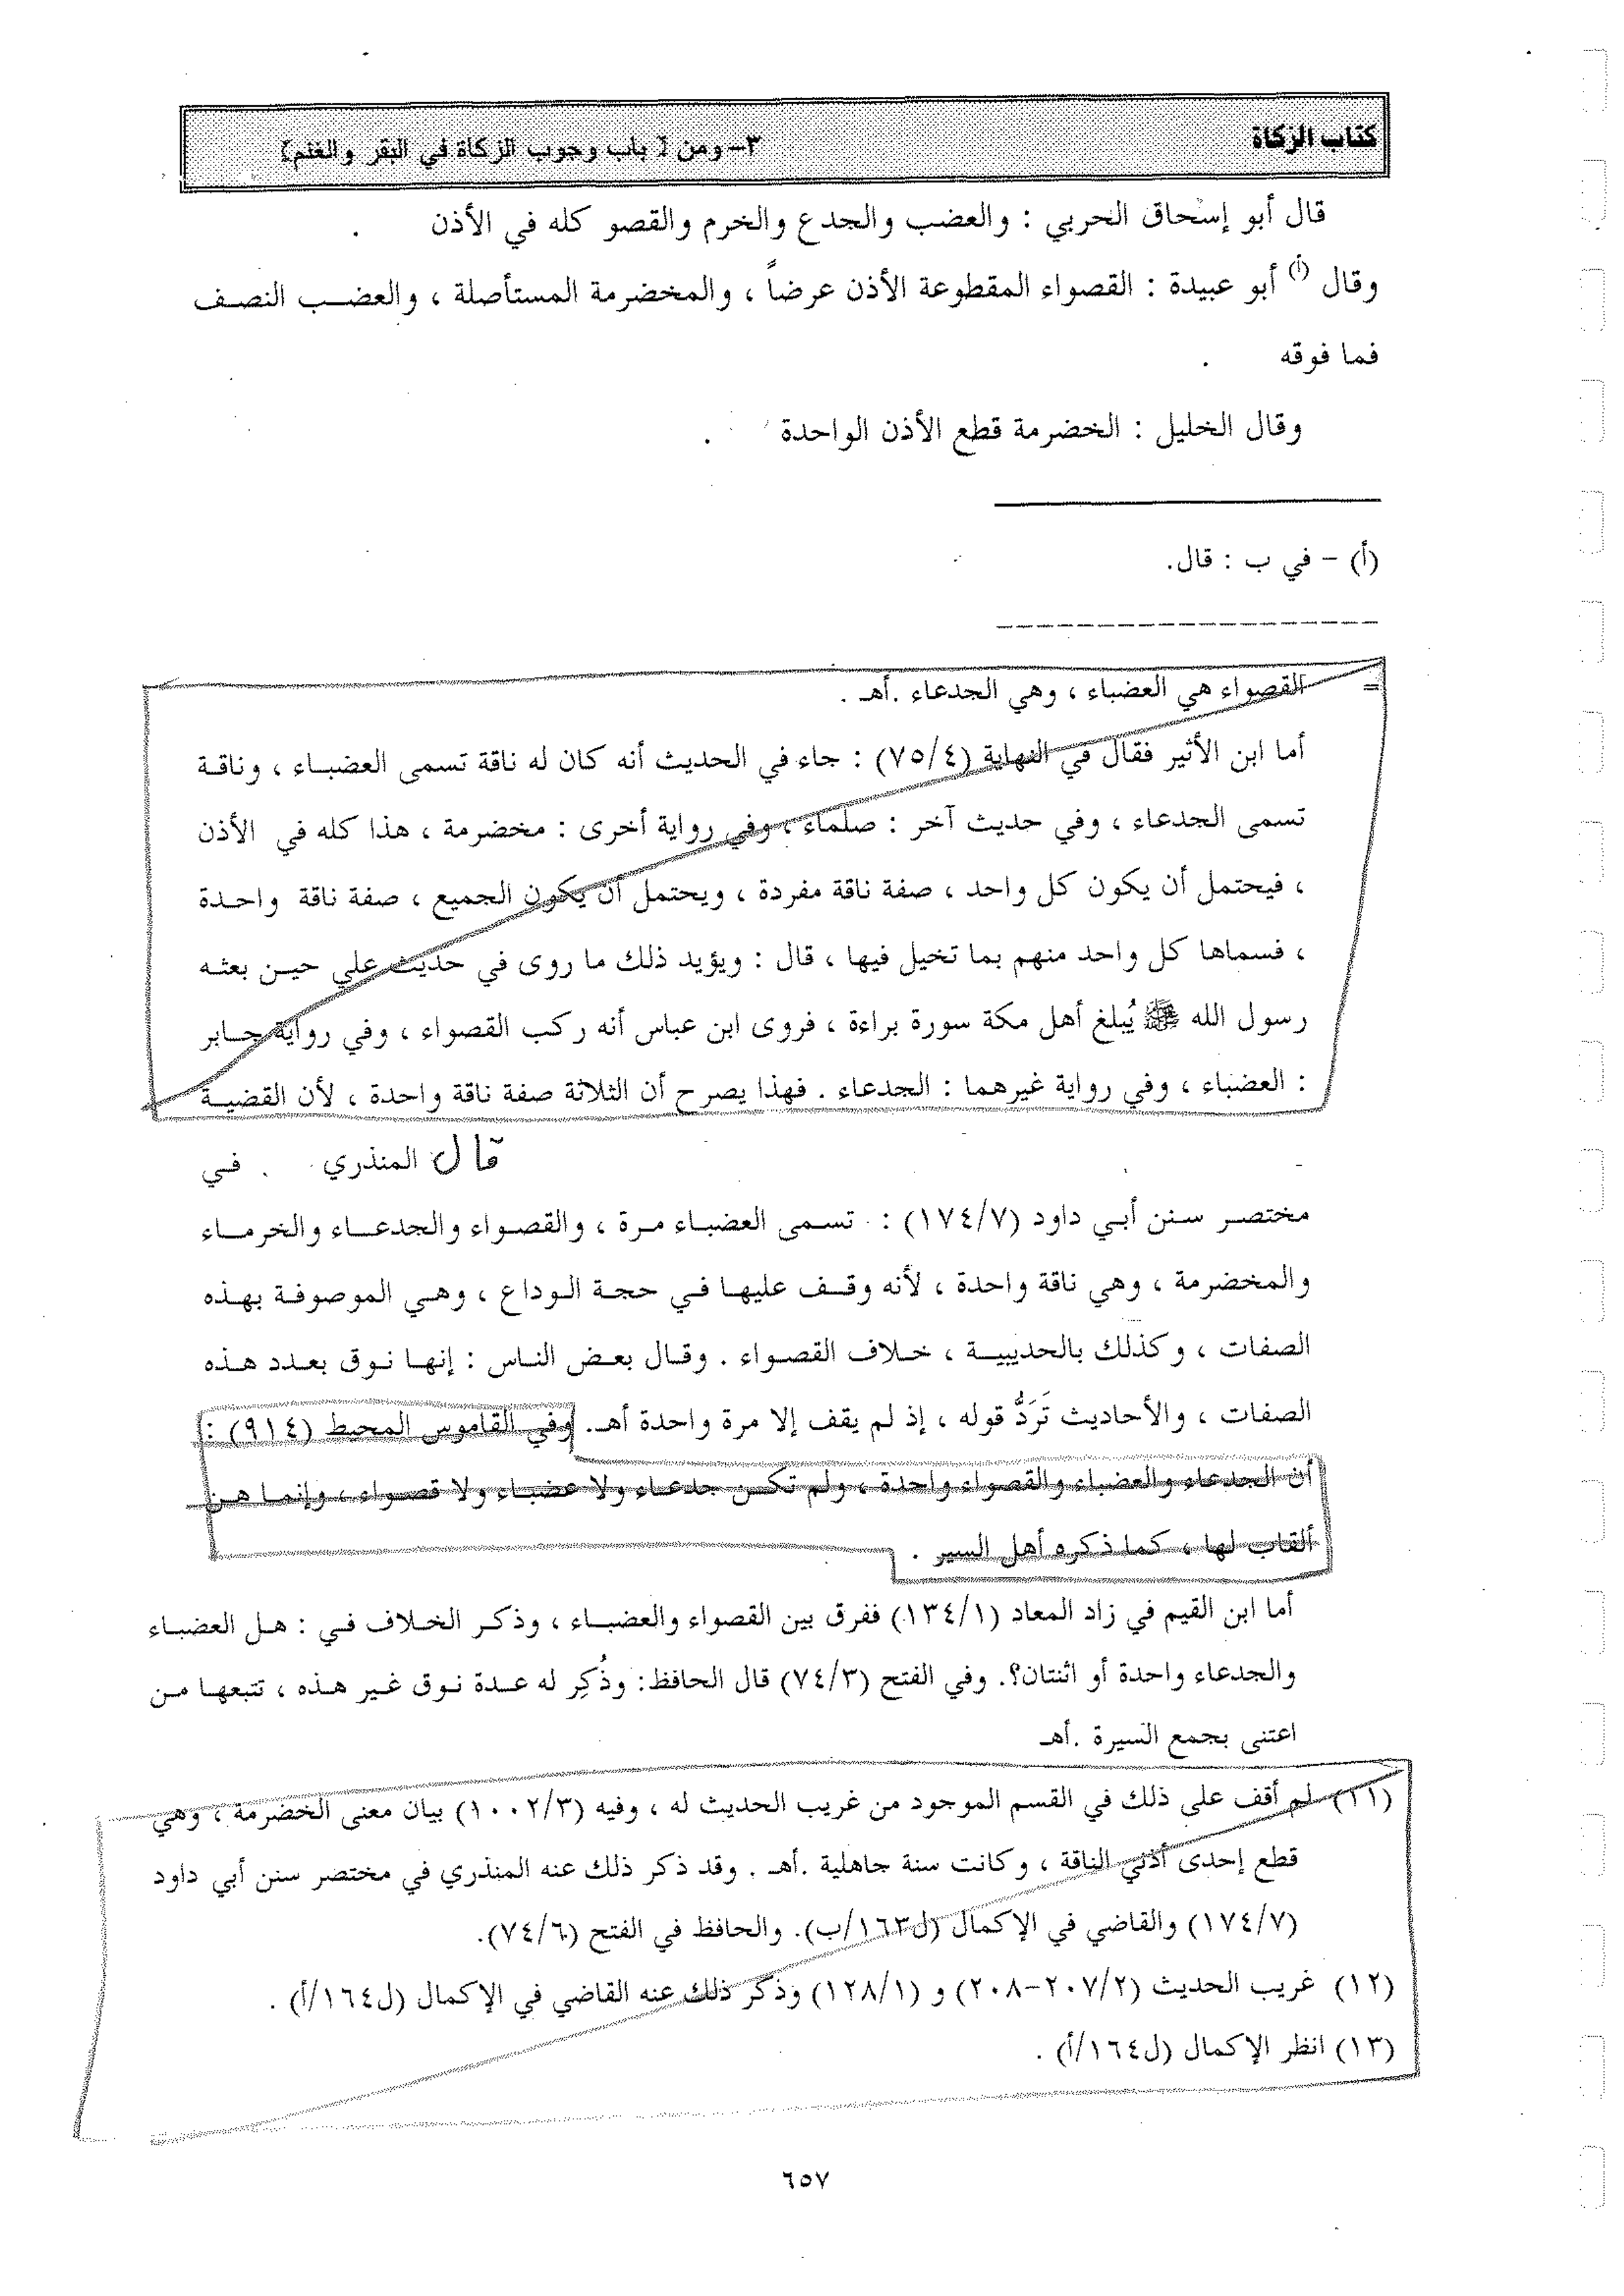 كتاب الزكاة
٣- ومن [ باب وجوب الزكاة في البقر والغنم]
قال أبو إسحاق الحربي : والعضب والجدع والخرم والقصو كله في الأذن .
وقال (أ) أبو عبيدة : القصواء المقطوعة الأذن عرضاً ، والمخضرمة المستأصلة ، والعضب النصف
فما فوقه .
وقال الخليل : الخضرمة قطع الأذن الواحدة .
(أ) - في ب : قال.
= القصواء هي العضباء ، وهي الجدعاء .أهـ .
أما ابن الأثير فقال في النهاية (٧٥/٤) : جاء في الحديث أنه كان له ناقة تسمى العضباء ، وناقة
تسمى الجدعاء ، وفي حديث آخر : صلماء ، وفي رواية أخرى : مخضرمة ، هذا كله في الأذن
، فيحتمل أن يكون كل واحد ، صفة ناقة مفردة ، ويحتمل أن يكون الجميع ، صفة ناقة واحدة
، فسماها كل واحد منهم بما تخيل فيها ، قال : ويؤيد ذلك ما روى في حديث علي حين بعثه
رسول الله ﷺ يُبلغ أهل مكة سورة براءة ، فروى ابن عباس أنه ركب القصواء ، وفي رواية جابر
: العضباء ، وفي رواية غيرهما : الجدعاء . فهذا يصرح أن الثلاثة صفة ناقة واحدة ، لأن القضية
قال المنذري . في
مختصر سنن أبي داود (١٧٤/٧) : تسمى العضباء مرة ، والقصواء والجدعاء والخرماء
والمخضرمة ، وهي ناقة واحدة ، لأنه وقف عليها في حجة الوداع ، وهي الموصوفة بهذه
الصفات ، وكذلك بالحديبية ، خلاف القصواء . وقال بعض الناس : إنها نوق بعدد هذه
الصفات ، والأحاديث تَرَدُّ قوله ، إذ لم يقف إلا مرة واحدة أهـ. وفي القاموس المحيط (٩١٤) :
أن الجدعاء والعضباء والقصواء واحدة ، ولم تكن جدعاء ولا عضباء ولا قصواء ، وإنما هن
ألقاب لها ، كما ذكره أهل السير .
أما ابن القيم في زاد المعاد (١٣٤/١) ففرق بين القصواء والعضباء ، وذكر الخلاف في : هل العضباء
والجدعاء واحدة أو اثنتان؟. وفي الفتح (٧٤/٣) قال الحافظ: وذُكِر له عدة نوق غير هذه ، تتبعها من
اعتنى بجمع السيرة .أهـ
(١١) لم أقف على ذلك في القسم الموجود من غريب الحديث له ، وفيه (١٠٠٢/٣) بيان معنى الخضرمة ، وهي
قطع إحدى أذني الناقة ، وكانت سنة جاهلية .أهـ . وقد ذكر ذلك عنه المنذري في مختصر سنن أبي داود
(١٧٤/٧) والقاضي في الإكمال (ل١٦٣/ب). والحافظ في الفتح (٧٤/٦).
(١٢) غريب الحديث (٢٠٧/٢-٢٠٨) و (١٢٨/١) وذكر ذلك عنه القاضي في الإكمال (ل١٦٤/أ) .
(١٣) انظر الإكمال (ل١٦٤/أ) .
٦٥٧